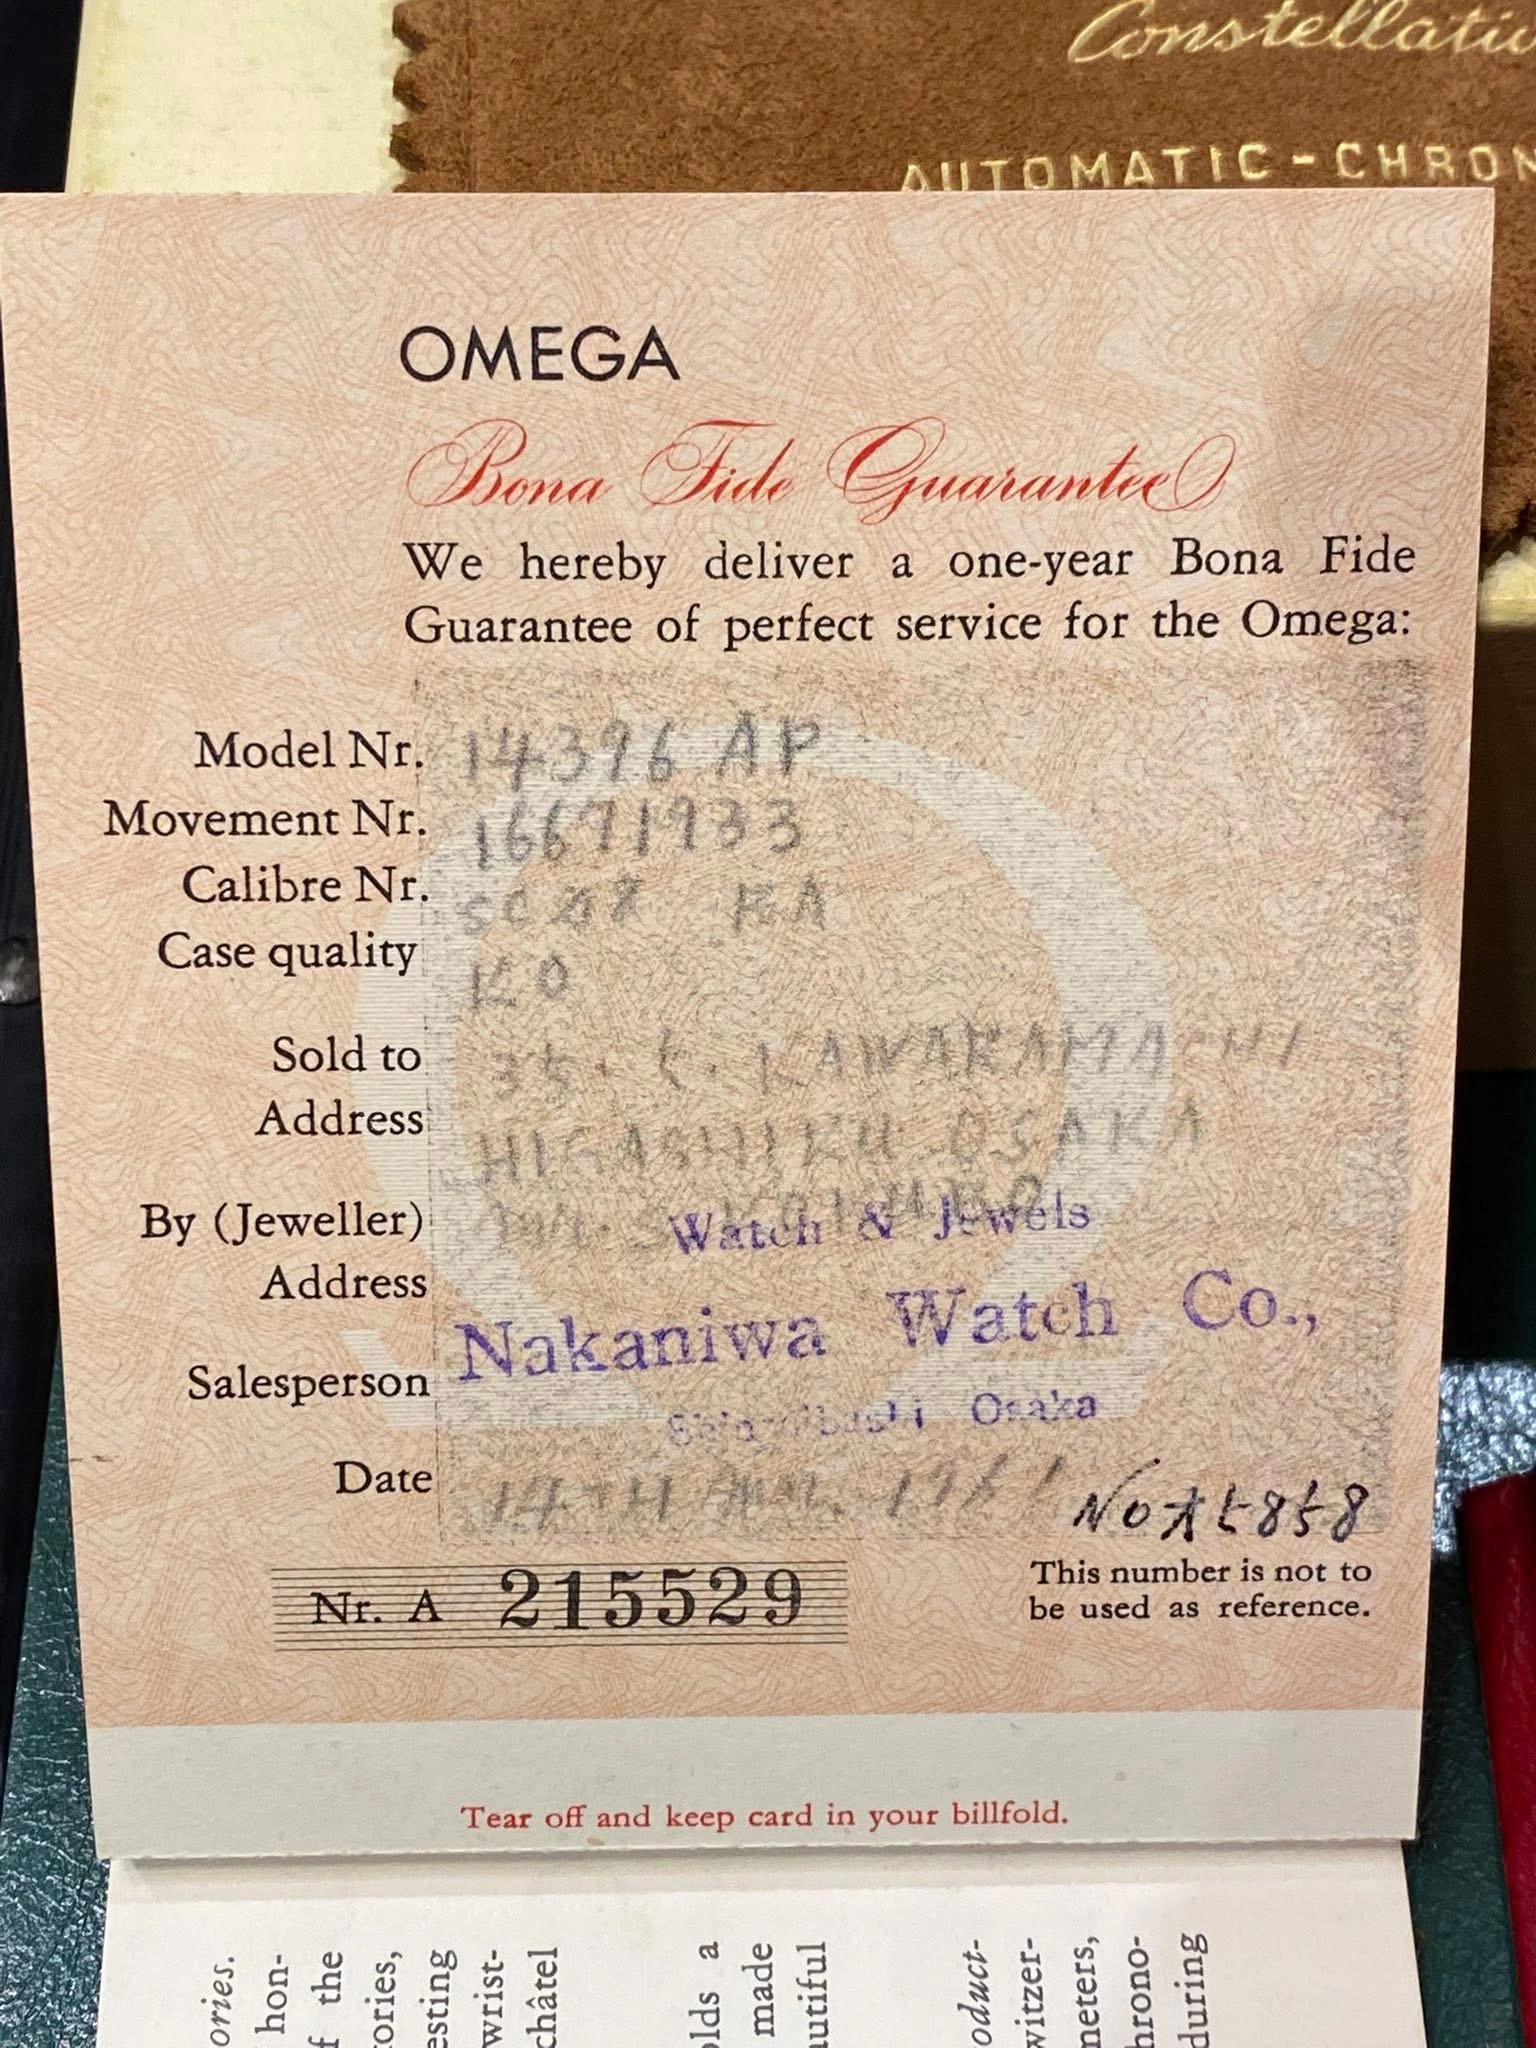 Constellatio
AUTOMATIC-CHRON
OMEGA
Bona Fide Guarantee
We hereby deliver a one-year Bona Fide
Guarantee of perfect service for the Omega:
Model Nr. 14396 AP
Movement Nr. 16671933
Calibre Nr. KA
Case quality KO
Sold to 35. KAWARAMACHI
Address HIGASHIKU OSAKA
By (Jeweller) Watch & Jewels
Address
Nakaniwa Watch Co.,
Salesperson
Osaka
Date 14TH 1961
Nr. A 215529
This number is not to
be used as reference.
Tear off and keep card in your billfold.
ories.
hon-
f the
tories,
esting
wrist-
châtel
olds a
made
autiful
oduct-
witzer-
meters,
hrono-
during